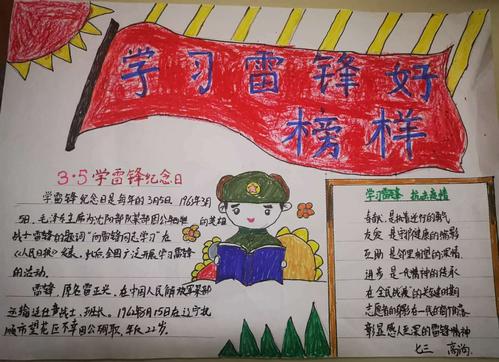 学习雷锋好
榜样
3·5学雷锋纪念日
学雷锋纪念日是每年的3月5日。1963年3月
5日,毛泽东主席为沈阳部队某部因公牺牲的英雄
战士雷锋的题词"向雷锋同志学习"在
《人民日报》发表,此后全国广泛开展学习雷锋
的活动。
雷锋,原名雷正兴,在中国人民解放军某部
运输连任童战士、班长。1962年8月15日在辽宁抚
城市望花区不幸因公殉职,年仅22岁。
学习雷锋 抗击疫情
奉献 是抗毒逆行的勇气
友爱 是守护健康的缩影
互助 是邻里邻间的浓情
进步 是一代精神的传承
在"全民战疫"的关键时期
志愿者的
彰显感人至深的雷锋精神
七三